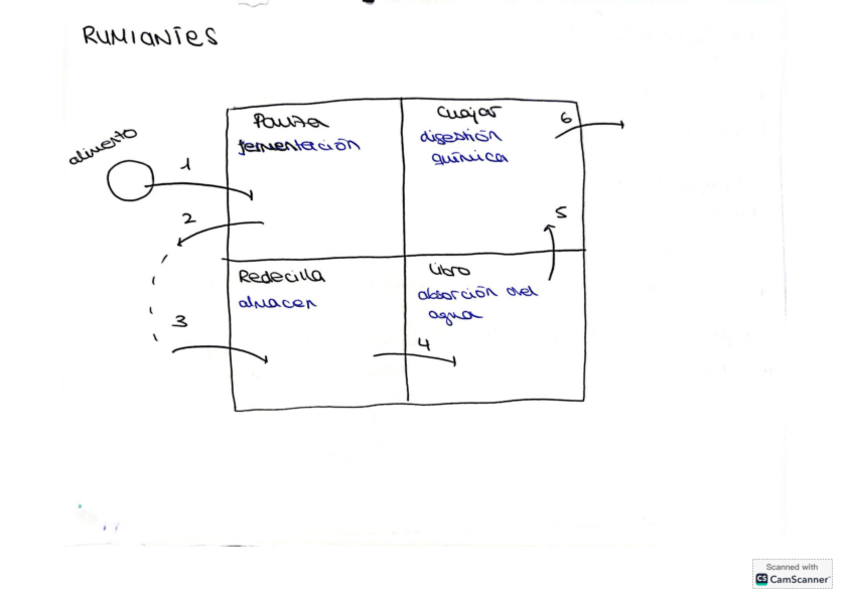 RUMIANTES
alimento
1
Panza
fermentación
2
Cuajar
digestión
química
6
5
Redecilla
almacen
3
4
Libro
absorción del
agua
Scanned with
CS CamScanner